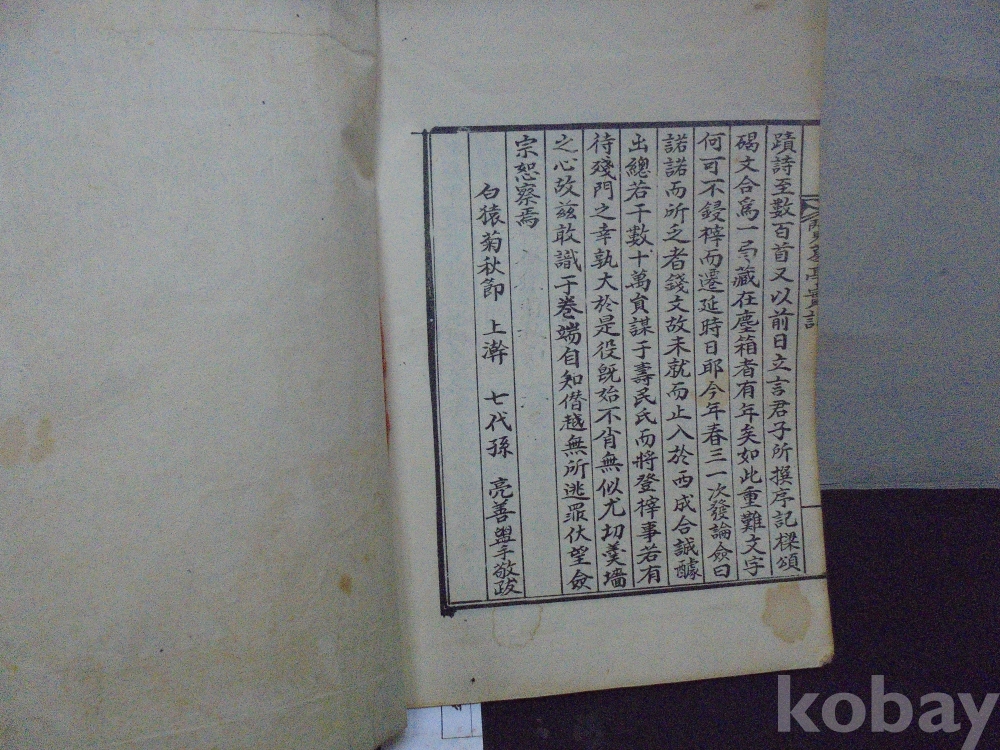 蹟詩至數百首又以前日立言君子所撰序記樑頌
碣文合爲一弓藏在塵箱者有年矣如此重難文字
何可不鋟榟而遷延時日耶今年春三一次發論僉曰
諾諾而所乏者錢文故未就而止入於西成合誠醵
出總若干數十萬貟謀于壽民氏而將登榟事若有
待殘門之幸孰大於是役旣始不肖無似尤切羹墻
之心故玆敢識于卷端自知僭越無所逃罪伏望僉
宗恕察焉
白猿菊秋節 上澣 七代孫 亮善盥手敬跋
kobay